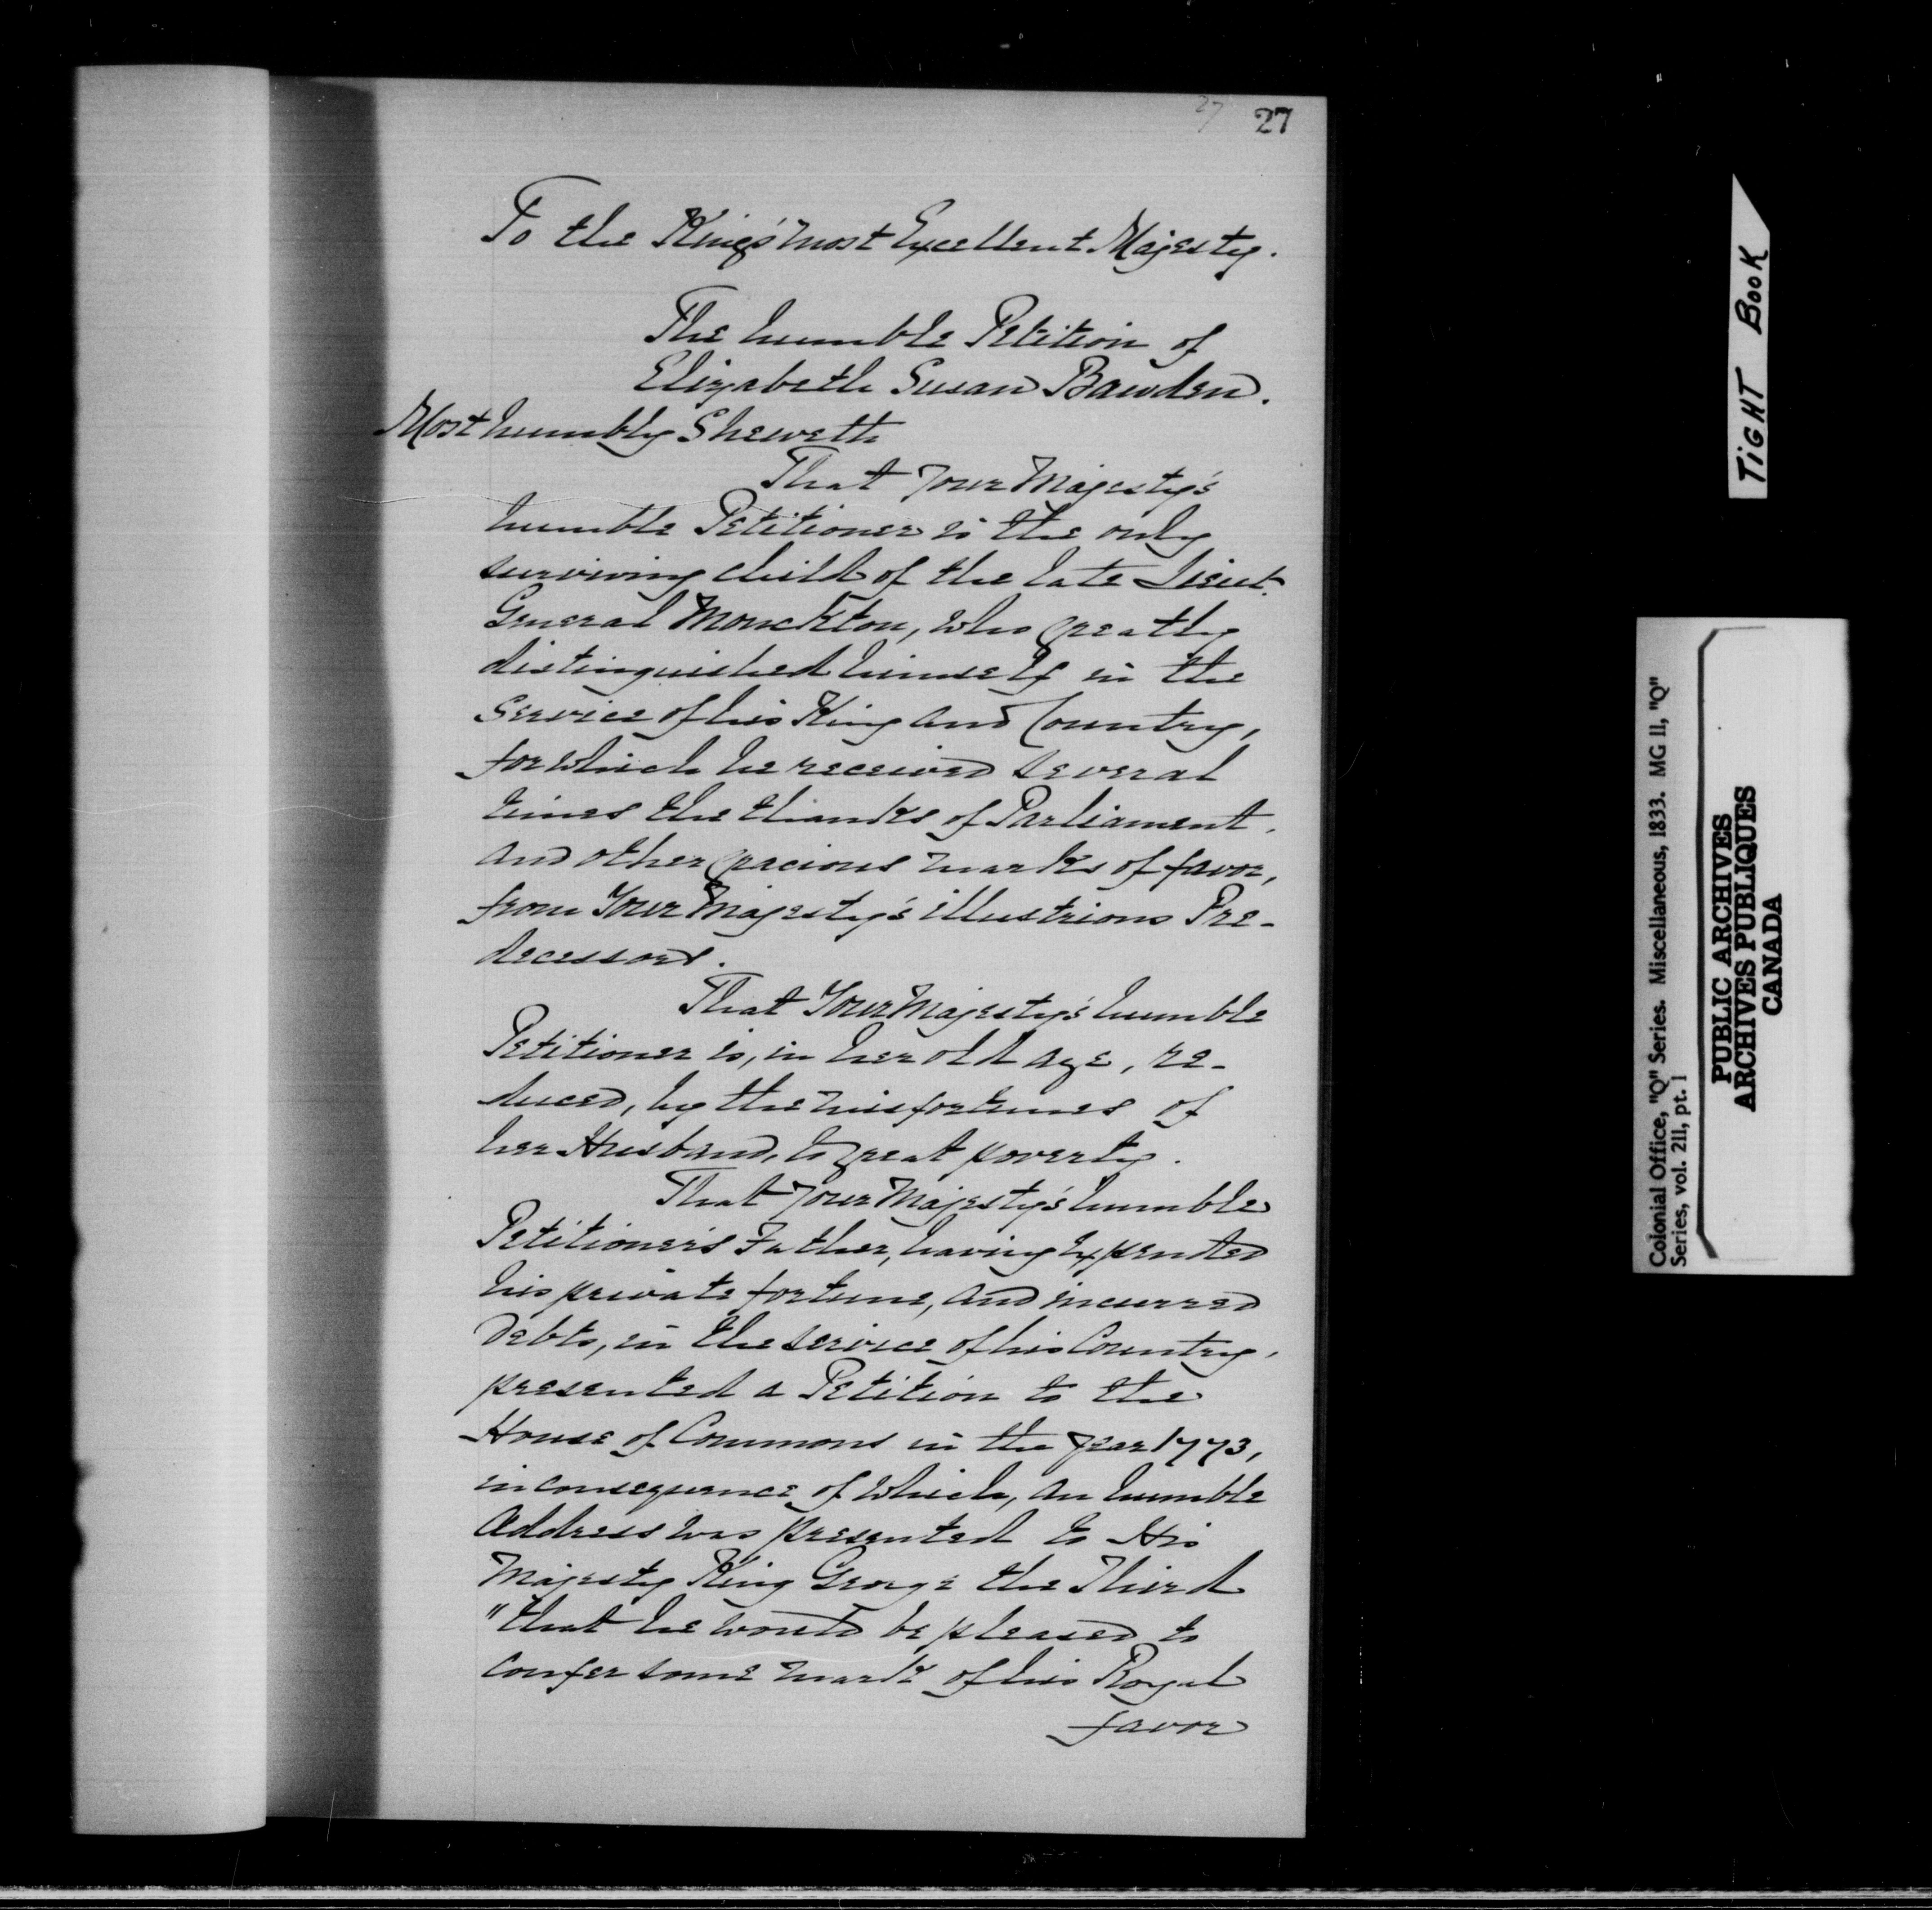 27 27
To the King's most Excellent Majesty.
The humble Petition of
Elizabeth Susan Bawden.
Most humbly Sheweth
That Your Majesty's
humble Petitioner is the only
surviving child of the late Lieut.
General Monckton, who greatly
distinguished himself in the
Service of his King and Country,
for which he received several
times the thanks of Parliament,
and other gracious marks of favor,
from Your Majesty's illustrious Pre-
decessors.
That Your Majesty's humble
Petitioner is, in her old age, re-
duced, by the misfortunes of
her Husband, to great poverty.
That Your Majesty's humble
Petitioner's Father, having expended
his private fortune, and incurred
Debts, in the service of his Country,
presented a Petition to the
House of Commons in the year 1773,
in consequence of which, an humble
Address was presented to His
Majesty King George the Third
"that he would be pleased to
confer some mark of his Royal
favor
TIGHT BOOK
Colonial Office, "Q" Series. Miscellaneous, 1833. MG 11, "Q"
Series, vol. 211, pt. 1
PUBLIC ARCHIVES
ARCHIVES PUBLIQUES
CANADA